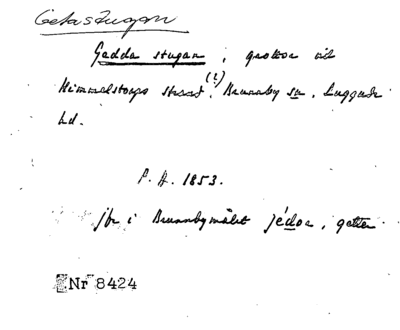 Getastugan
Gedda stugan, grottor vid
Himmelstorps strand (?), Brunnby sn, Luggude
hd.
P. A. 1853.
jfr i Brunnbymålet jédor, getter
Nr 8424